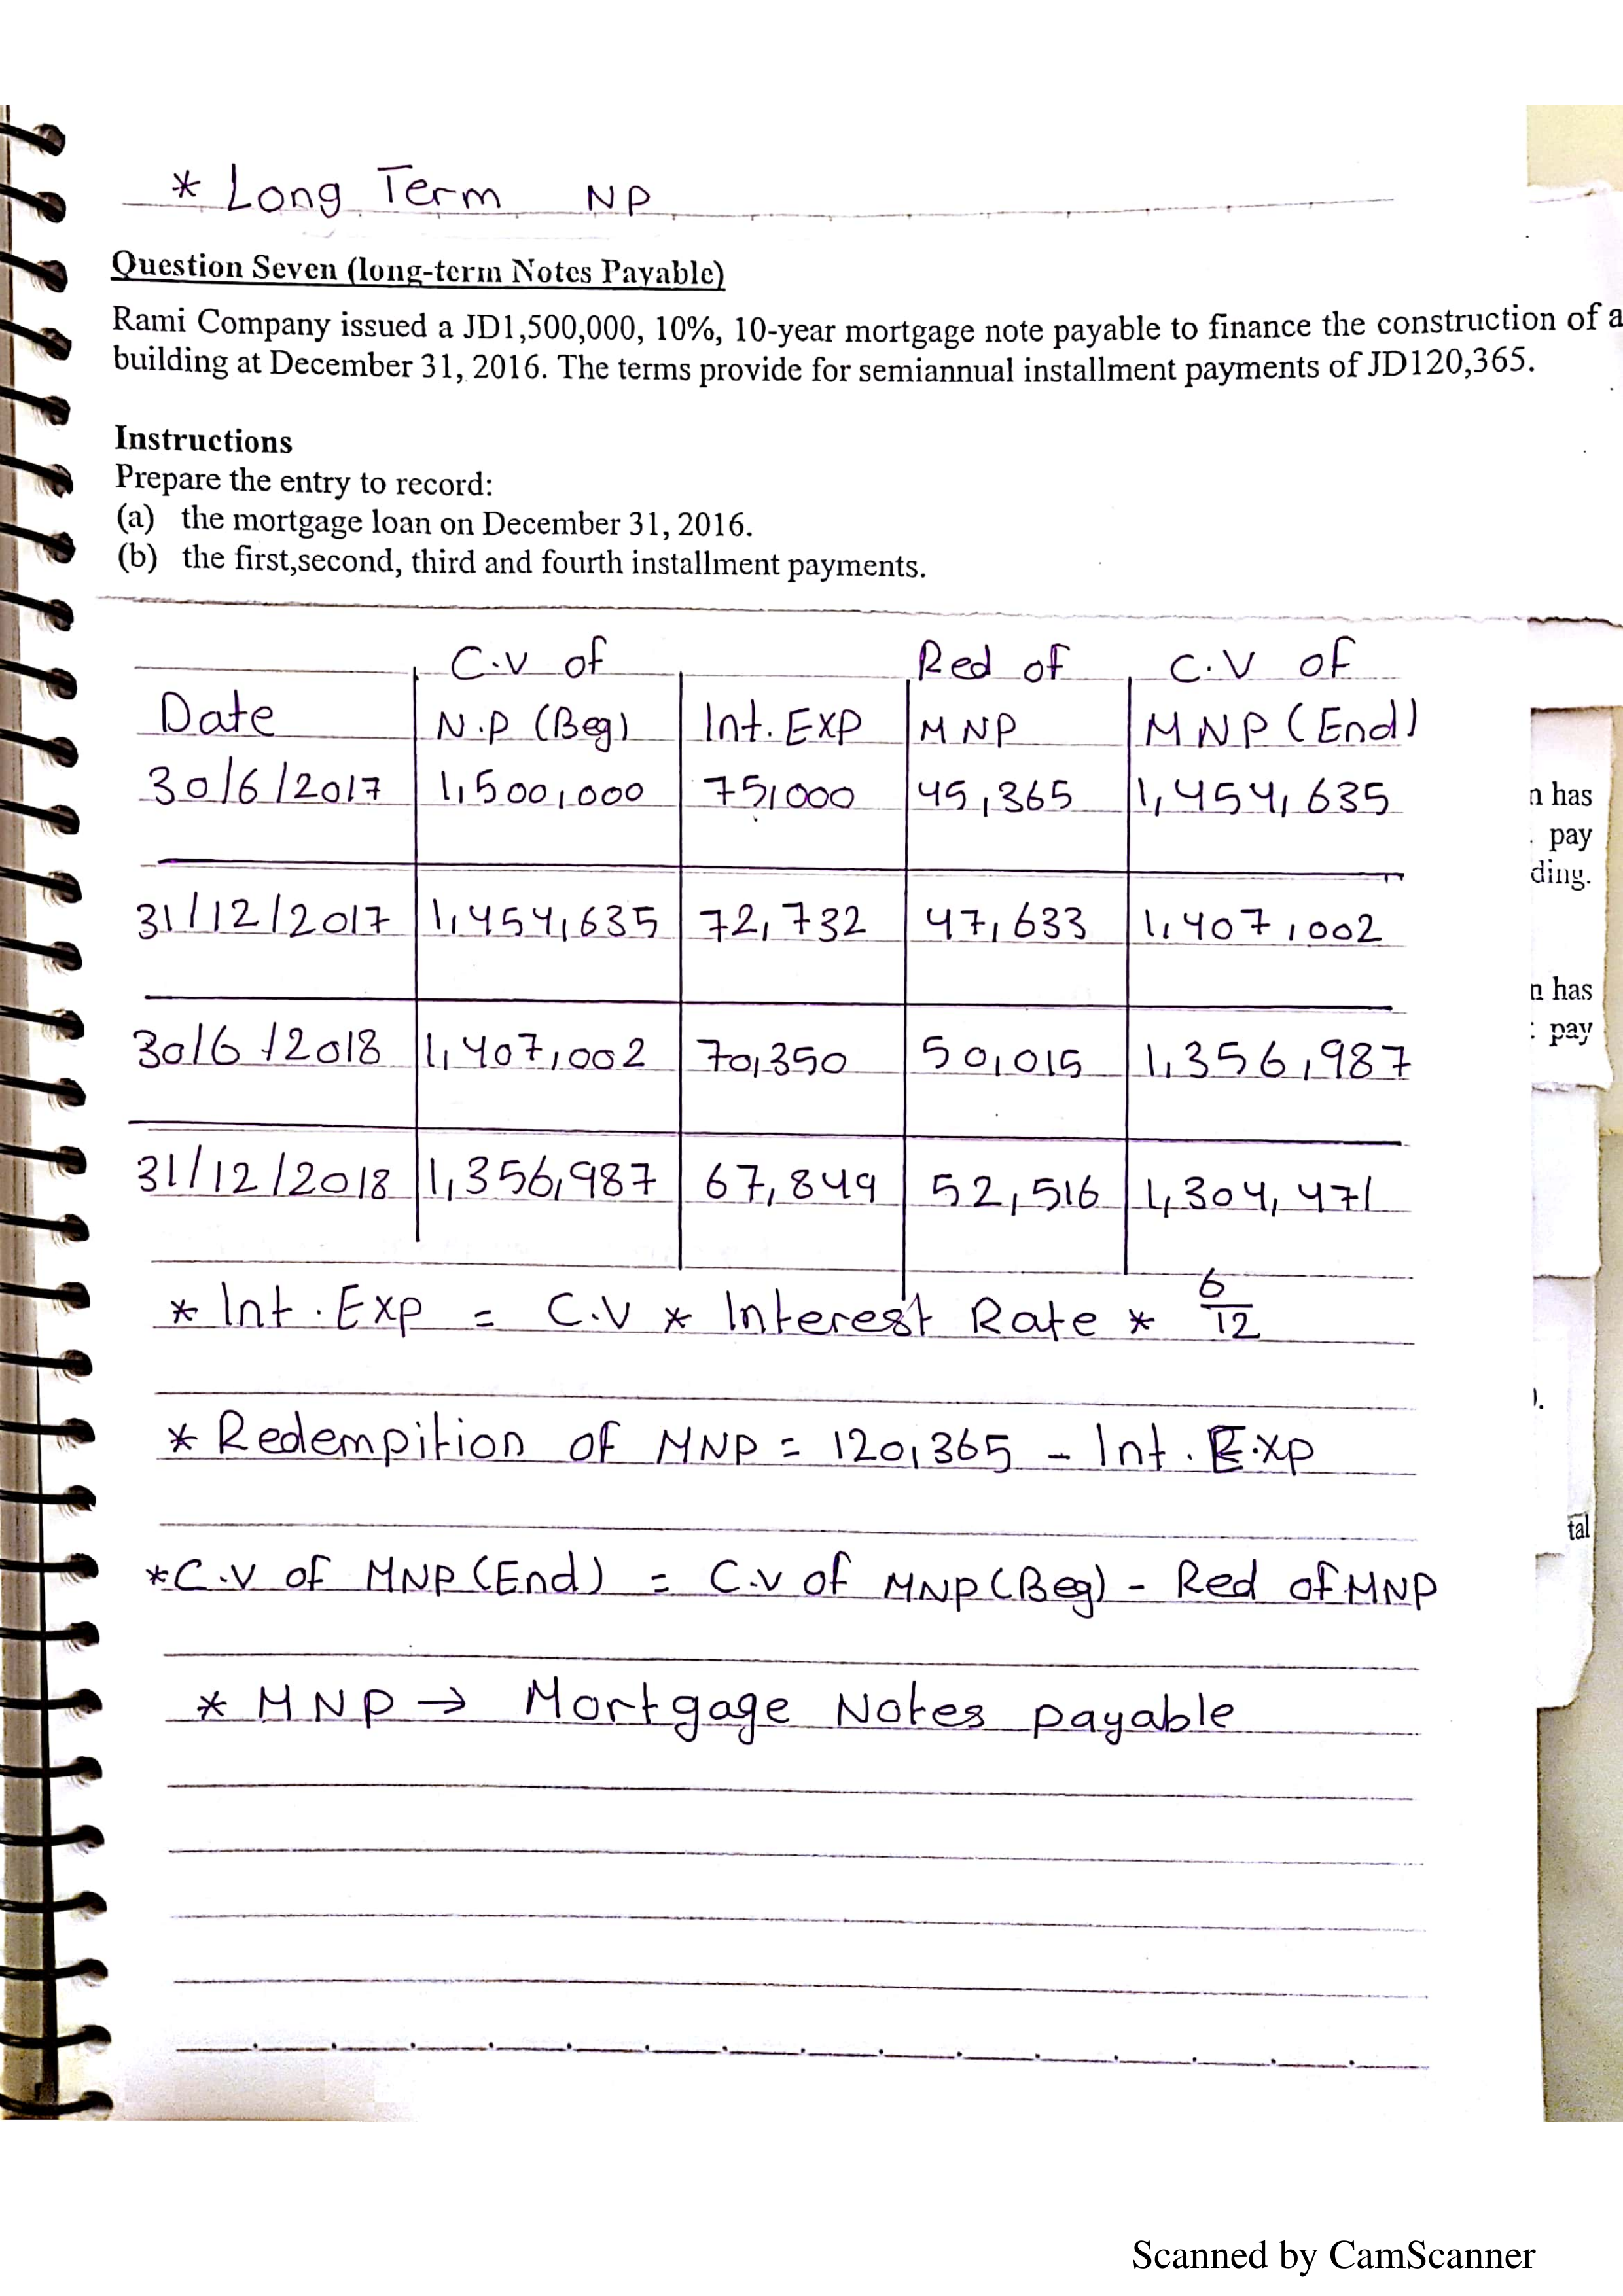 * Long Term NP
Question Seven (long-term Notes Payable)
Rami Company issued a JD1,500,000, 10%, 10-year mortgage note payable to finance the construction of a
building at December 31, 2016. The terms provide for semiannual installment payments of JD120,365.
Instructions
Prepare the entry to record:
(a) the mortgage loan on December 31, 2016.
(b) the first,second, third and fourth installment payments.
C.V of Red of C.V of
Date N.P (Beg) Int. EXP MNP MNP (End)
30/6/2017 1,500,000 75,000 45,365 1,454,635
n has
pay
ding.
31/12/2017 1,454,635 72,732 47,633 1,407,002
n has
: pay
30/6/2018 1,407,002 70,350 50,015 1,356,987
31/12/2018 1,356,987 67,849 52,516 1,304,471
* Int. Exp = C.V * Interest Rate * 6/12
).
* Redempition of MNP = 120,365 - Int. E.xp
tal
* C.V of MNP (End) = C.V of MNP (Beg) - Red of MNP
* MNP → Mortgage Notes payable
Scanned by CamScanner